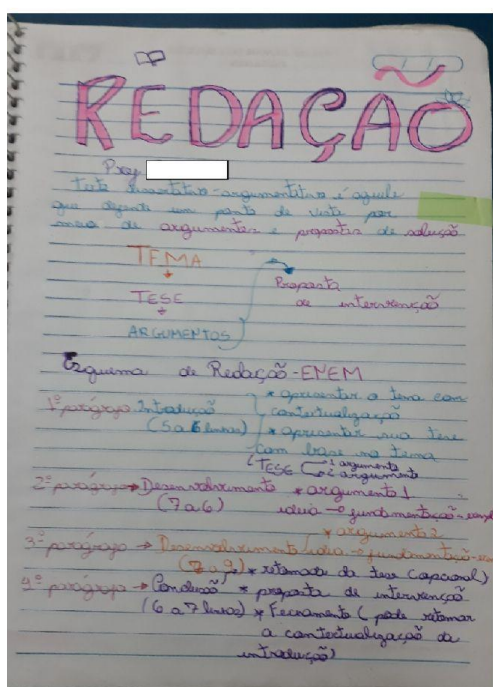 REDAÇÃO
Prof
Texto dissertativo-argumentativo é aquele
que defente um ponto de vista por
meio de argumentos e propostas de solução
TEMA
TESE
ARGUMENTOS
Proposta
de intervenção
Esquema de Redação-ENEM
1º parágrafo Introdução * apresentar o tema com
(5 a 6 linhas) contextualização
* apresentar sua tese
com base no tema
(TESE 1 argumento
2 argumento
2º parágrafo → Desenvolvimento * argumento 1
(7 a 6) ideia → fundamentação
* argumento 2
3º parágrafo → Desenvolvimento ideia → fundamentação
* retomada da tese (opcional)
4º parágrafo → Conclusão * proposta de intervenção
(6 a 7 linhas) * Fechamento (pode retomar
a contextualização da
introdução)